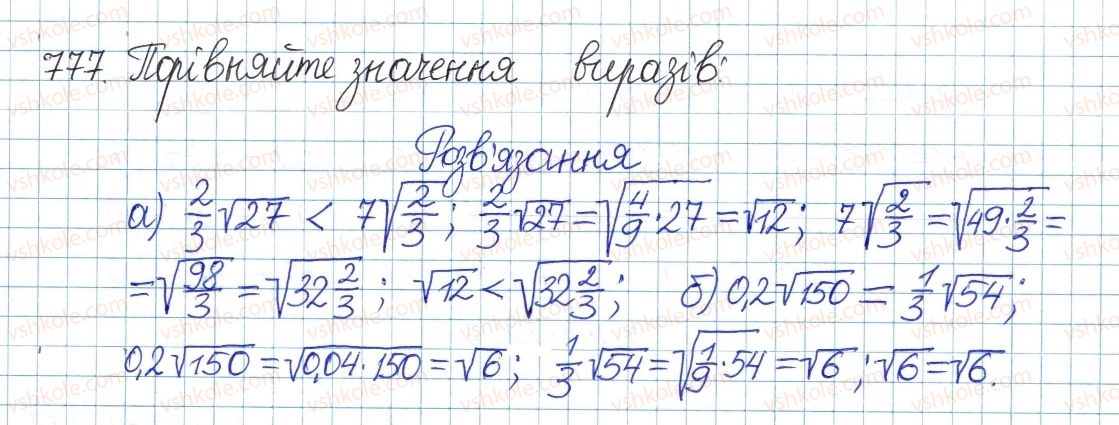 777. Порівняйте значення виразів:
Розв'язання
а) 2/3 √27 < 7√(2/3); 2/3 √27 = √(4/9 · 27) = √12; 7√(2/3) = √(49 · 2/3) =
= √(98/3) = √(32 2/3); √12 < √(32 2/3); б) 0,2√150 = 1/3 √54;
0,2√150 = √(0,04 · 150) = √6; 1/3 √54 = √(1/9 · 54) = √6; √6 = √6.